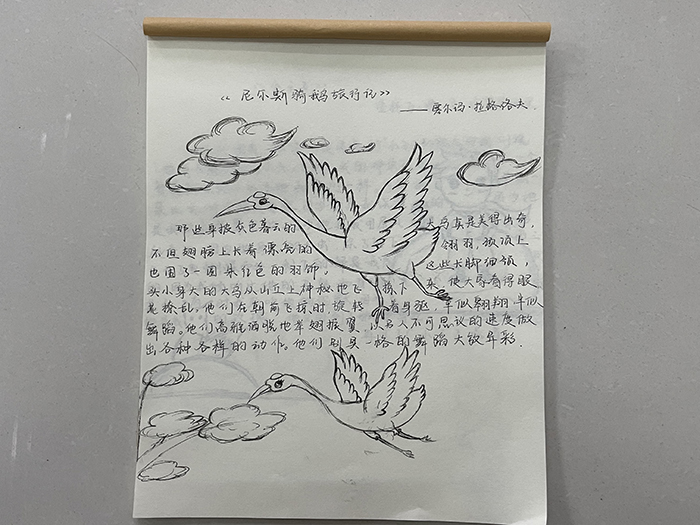 《尼尔斯骑鹅旅行记》
——塞尔玛·拉格洛夫
那些身披灰色暮云的大鸟真是美得出奇,
不但翅膀上长着漂亮的翎羽,颈项上
也围了一圈朱红色的羽饰。这些长脚细颈,
头小身大的大鸟从山丘上神秘地飞掠下来,使大家看得眼
花撩乱。他们在朝前飞掠时,旋转着身躯,半似翱翔半似
舞蹈。他们高雅洒脱地举翅振翼,以令人不可思议的速度做
出各种各样的动作。他们别具一格的舞蹈大放异彩.